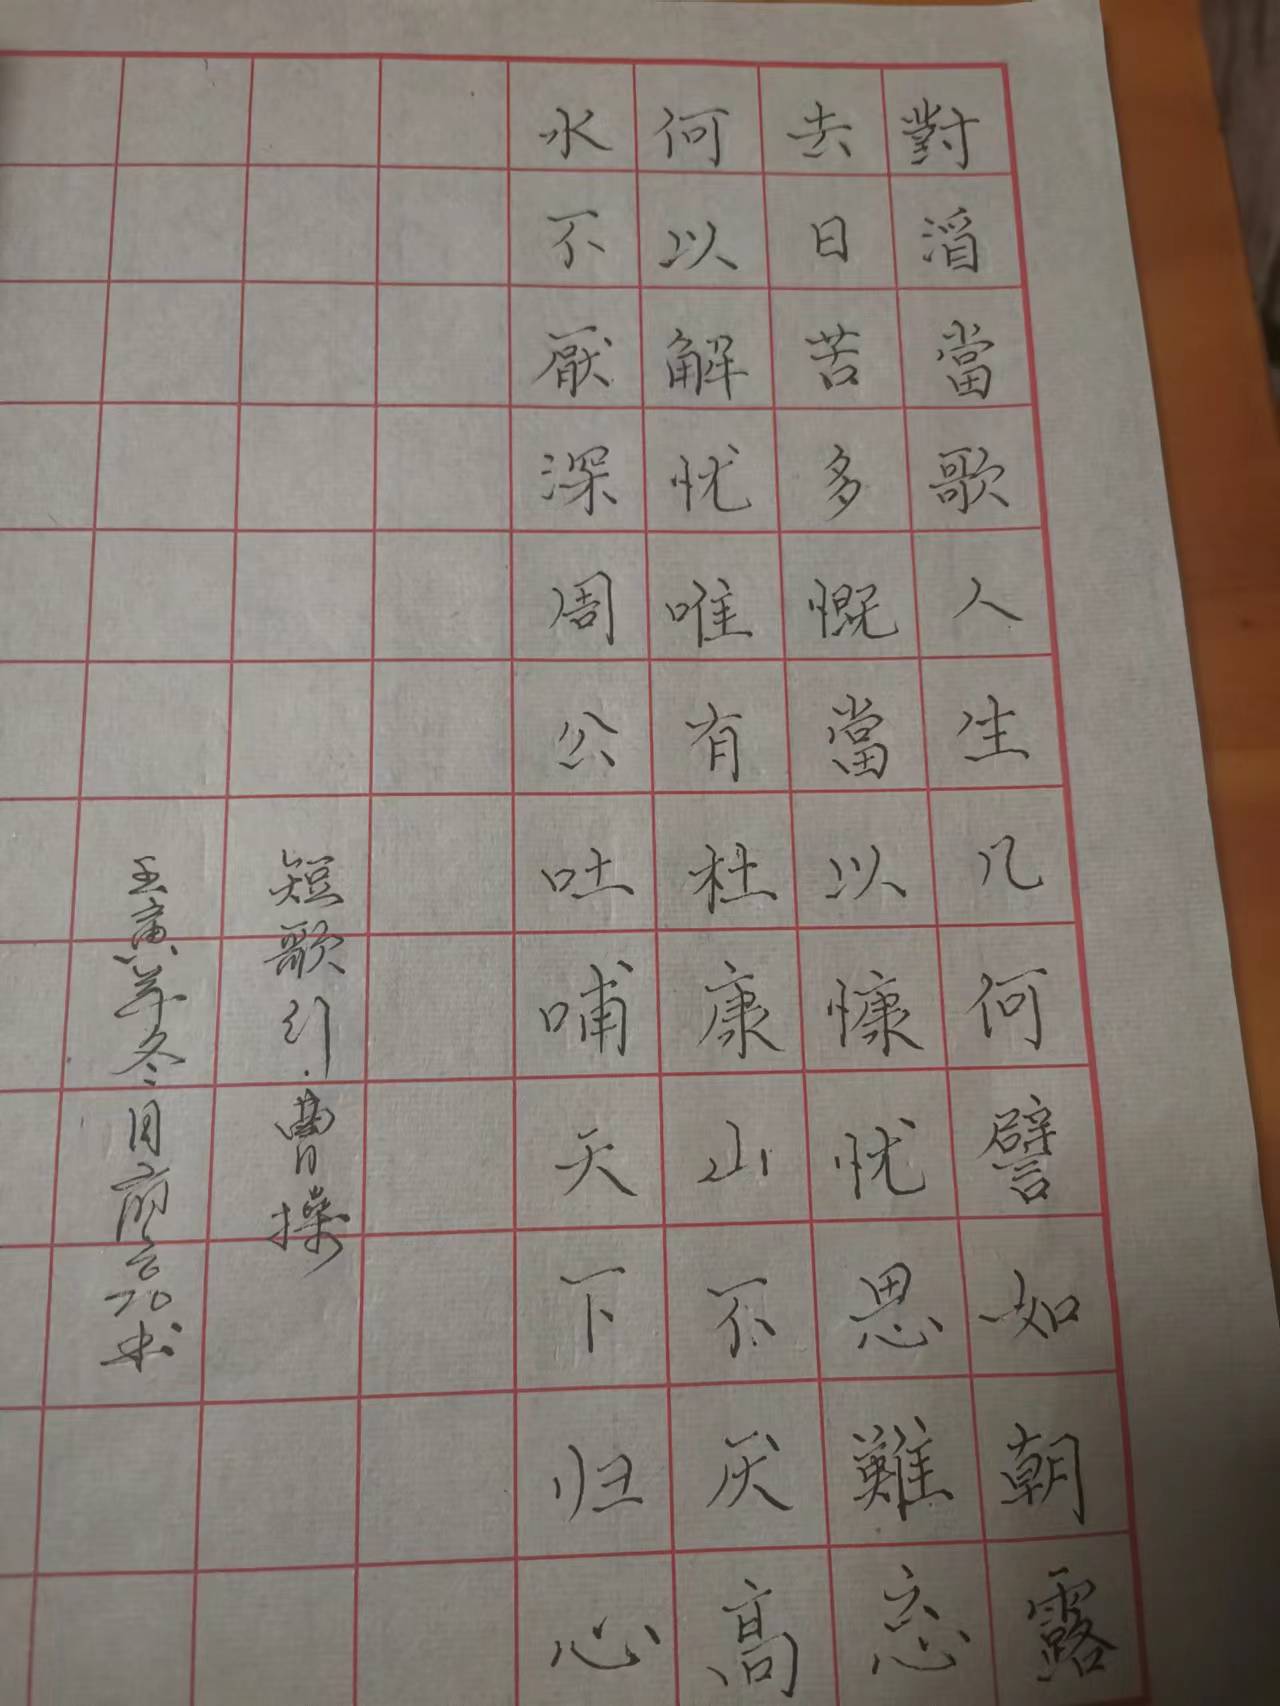 對滔當歌人生几何譬如朝露
去日苦多慨當以慷忧思難忘
何以解忧唯有杜康山不厌高
水不厭深周公吐哺天下归心
短歌行·曹操
壬寅年冬月廖亮书